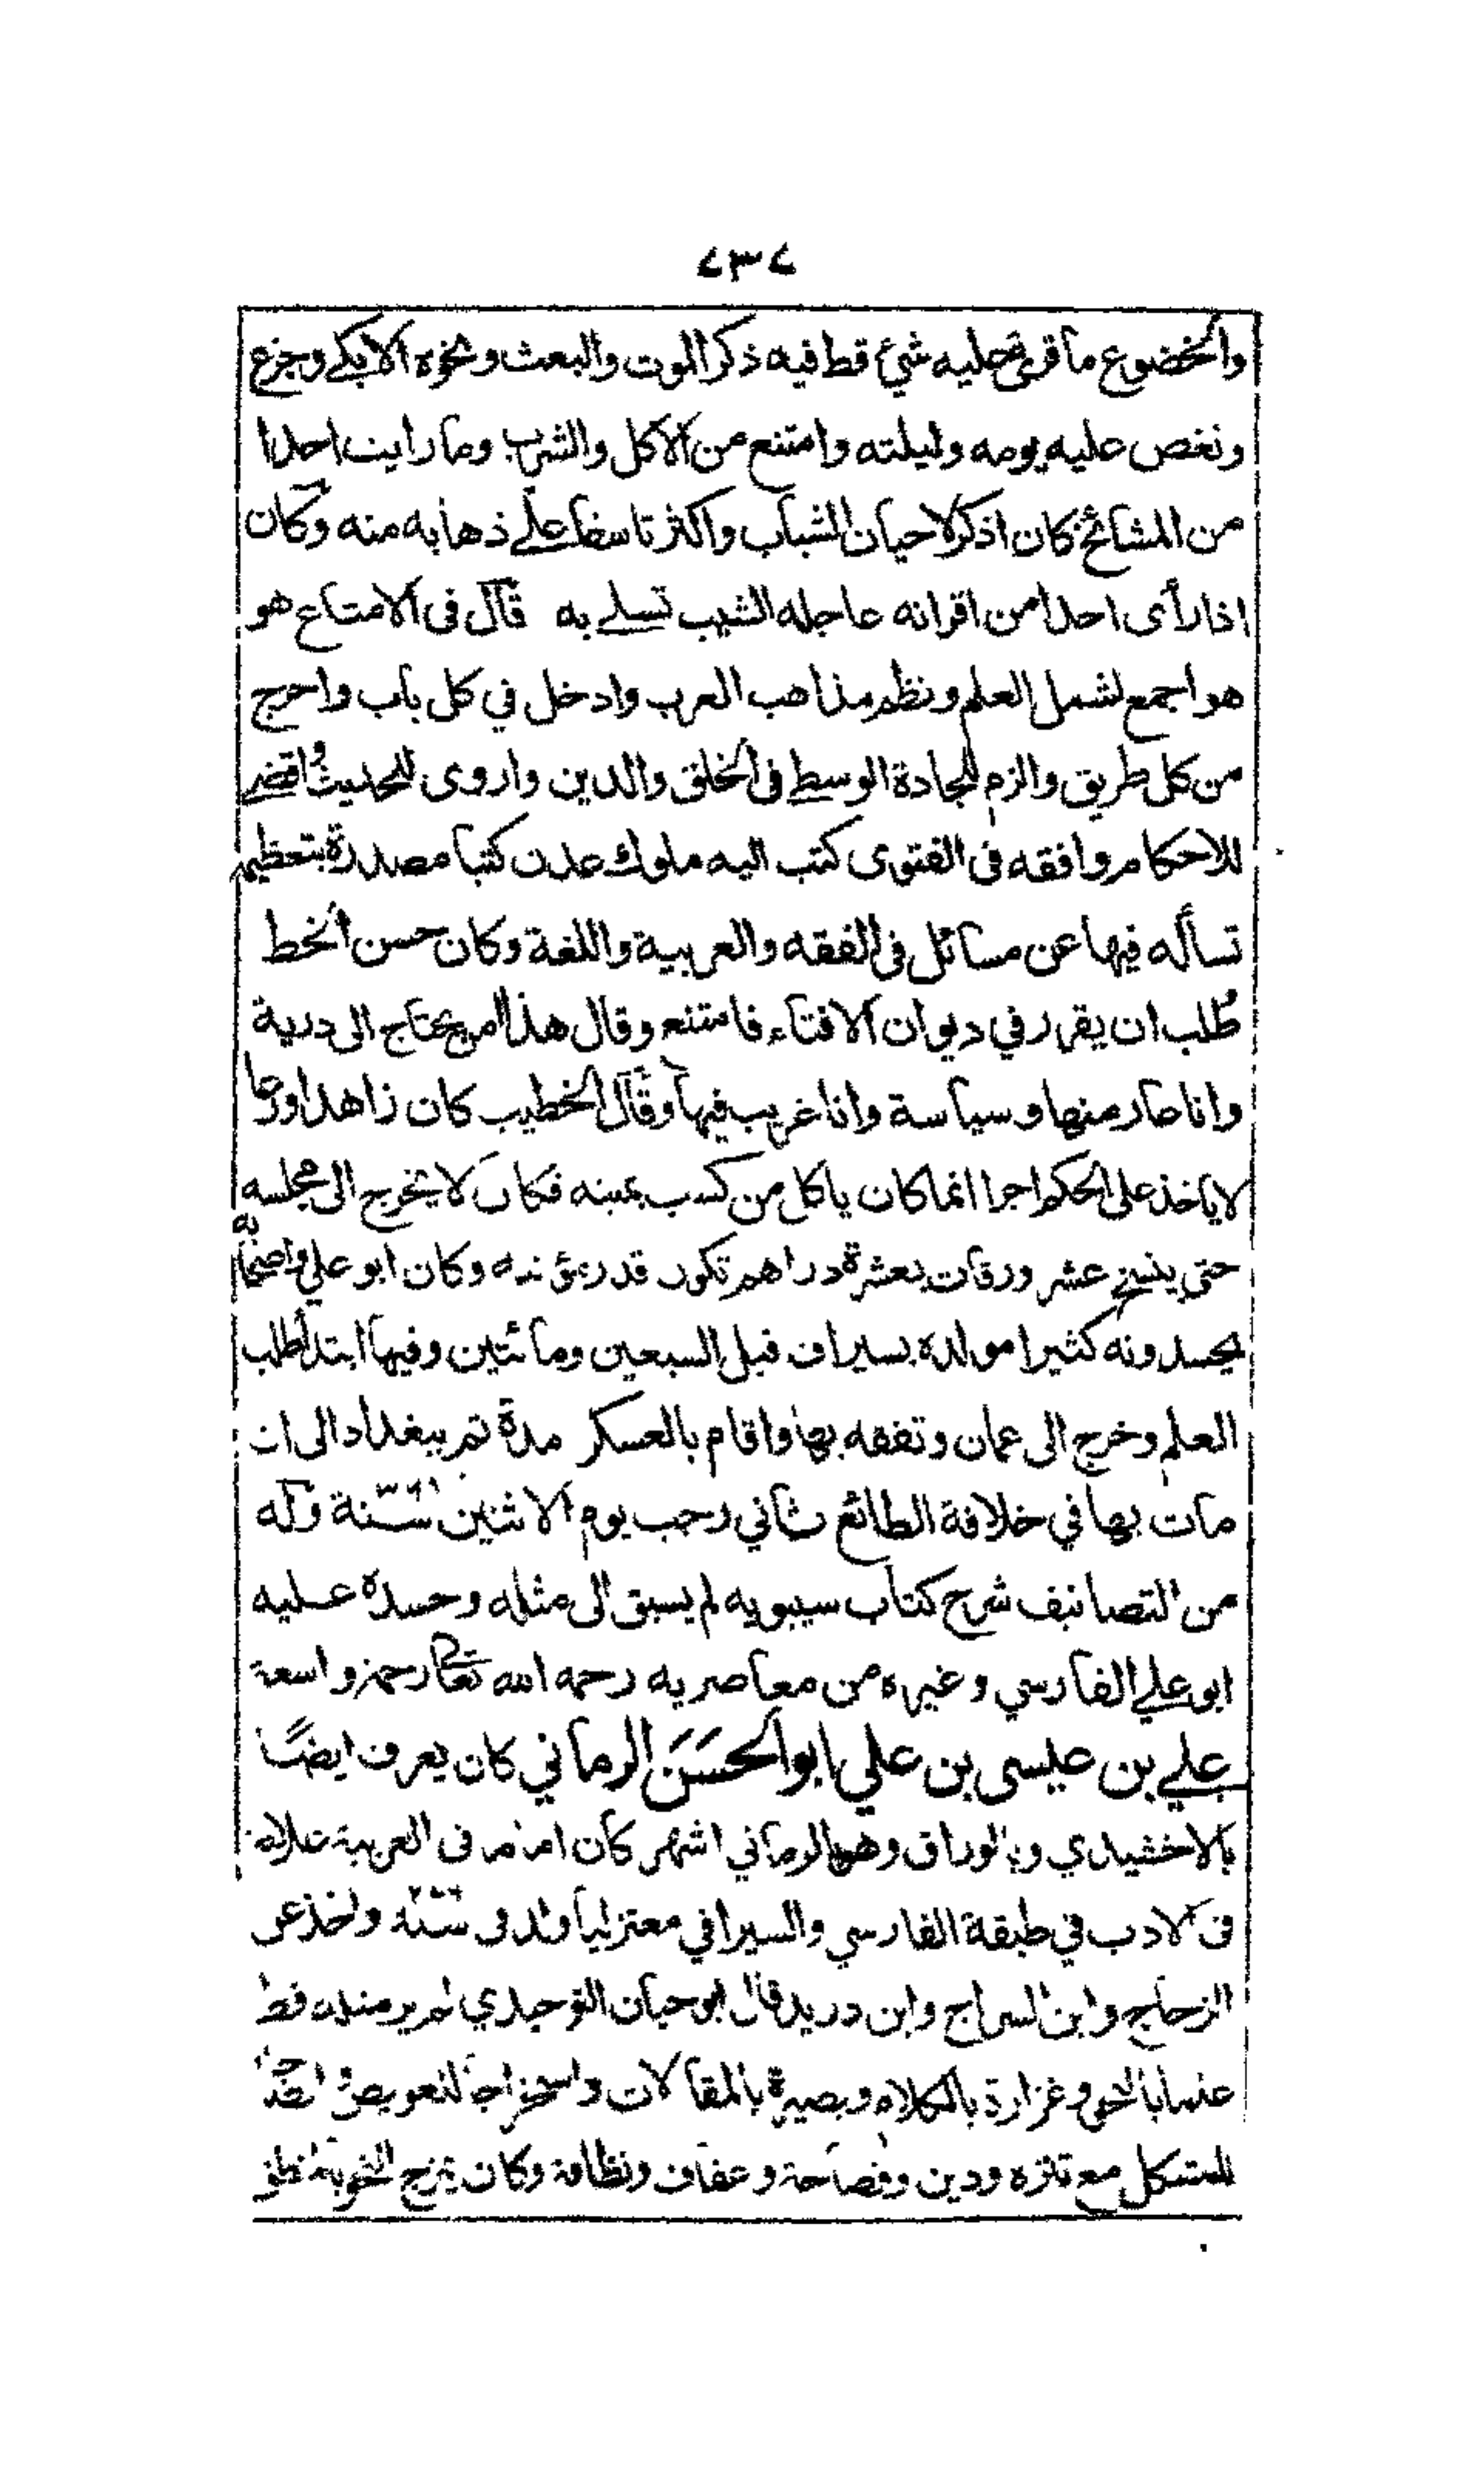 ٢٣٢
والخضوع ما قرئ عليه شيئ قط فيه ذكر الموت والبعث ونحوه الا بكى وجزع
ونغص عليه يومه وليلته وامتنع من الاكل والشرب وما رايت احدا
من المشائخ كان اذكر لاحيان الشباب واكثر تاسفا على ذهابه منه وكان
اذا رأى احدا من اقرانه عاجله الشيب تسلى به قال فى الامتاع هو
هو اجمع لشمل العلم ونظم مذاهب العرب وادخل في كل باب واخرج
من كل طريق والزم للجادة الوسطى فى الخلق والدين واروى للحديث واقضى
للاحكام وافقه فى الفتوى كتب اليه ملوك عدن كتبا مصدرة بتعظيم
تسأله فيها عن مسائل فى الفقه والعربية واللغة وكان حسن الخط
طُلب ان يقرر في ديوان الافتاء فامتنع وقال هذا امر يحتاج الى دربة
وانا عار منها وسياسة وانا غريب فيها وقال الخطيب كان زاهدا ورعا
لا ياخذ على الحكم اجرا انما كان ياكل من كسب يمينه فكان لا يخرج الى مجلسه
حتى ينسخ عشر ورقات بعشرة دراهم تكون قدر مؤنته وكان ابو علي واصحابه
يحسدونه كثيرا مولده بسيراف قبل السبعين ومائتين وفيها ابتدأ طلب
العلم وخرج الى عمان وتفقه بها واقام بالعسكر مدة ثم ببغداد الى ان
مات بها في خلافة الطائع ثاني رجب يوم الاثنين سنة وله
من التصانيف شرح كتاب سيبويه لم يسبق الى مثله وحسده عليه
ابو علي الفارسي وغيره من معاصريه رحمه الله تعالى رحمة واسعة
علي بن عيسى بن علي ابو الحَسَن الرماني كان يعرف ايضًا
بالاخشيدي وبالوراق وهو بالرماني اشهر كان اماما فى العربية علامة
فى الادب في طبقة الفارسي والسيرافي معتزليا ولد فى سنة ٢٧٦ واخذ عن
الزجاج وابن السراج وابن دريد قال ابو حيان التوحيدي لم ير مثله قط
علما بالنحو وغزارة بالكلام وبصيرة بالمقالات واستخراجا للعويص وايضاحا
للمشكل مع تنزه ودين وفصاحة وعفاف ونظافة وكان يمزج النحو بالمنطق